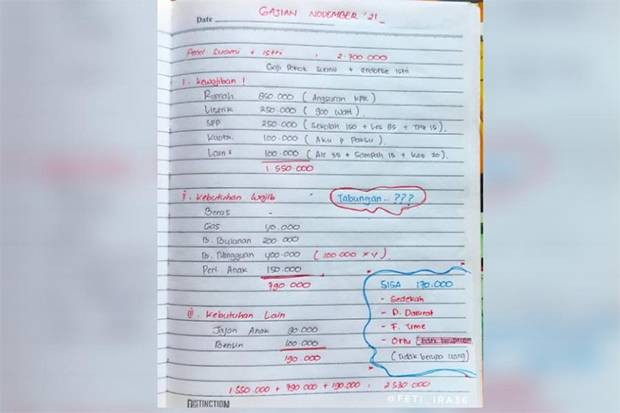 GAJIAN NOVEMBER '21
Date
Peng. Suami + Istri : 2.700.000
Gaji Pokok Suami + Endorse Istri
I. Kewajiban !
Rumah 850.000 (Angsuran KPR)
Listrik 250.000 (900 Watt)
SPP 250.000 (Sekolah 150 + Les 85 + TPQ 15).
Kuota. 100.000 (Aku & Paksu).
Lain2 100.000 (Air 55 + Sampah 15 + Kas 30).
1.550.000
II. Kebutuhan Wajib
Tabungan... ???
Beras -
Gas 40.000
B. Bulanan 200.000
B. Mingguan 400.000 (100.000 x 4).
Perl Anak 150.000
790.000
SISA 170.000
- Sedekah
- D. Darurat
- F. Time
- Ortu
(Tidak berupa uang)
III. Kebutuhan Lain
Jajan Anak 90.000
Bensin 100.000
190.000
1.550.000 + 790.000 + 190.000 : 2.530.000
DISTINCTION
@FETI_IRA36